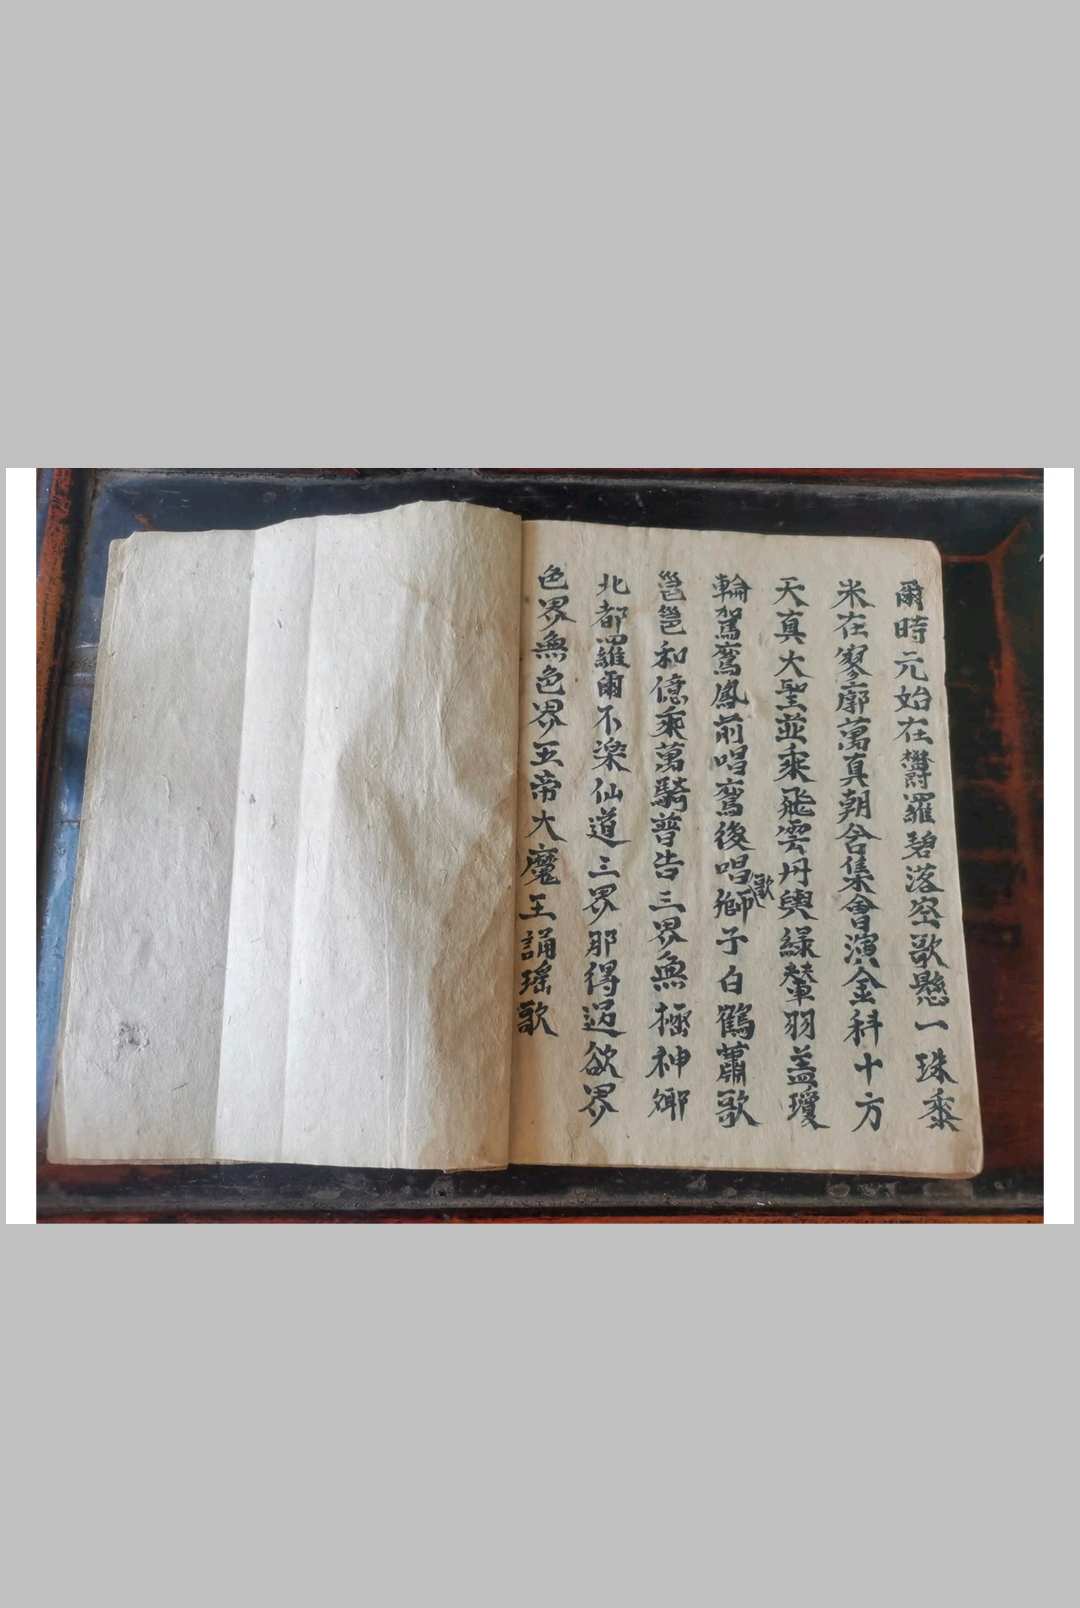 爾時元始在欝羅碧落空歌懸一珠黍
米在寥廓萬真朝令集會演金科十方
天真大聖並乘飛雲丹輿綠輦羽盖瓊
輪駕鸞鳳前唱鸞後唱歌獅子白鶴蕭歌
邕邕和億乘萬騎普告三界無極神鄉
北都羅爾不楽仙道三界那得過欲界
色界無色界五帝大魔王誦瑶歌